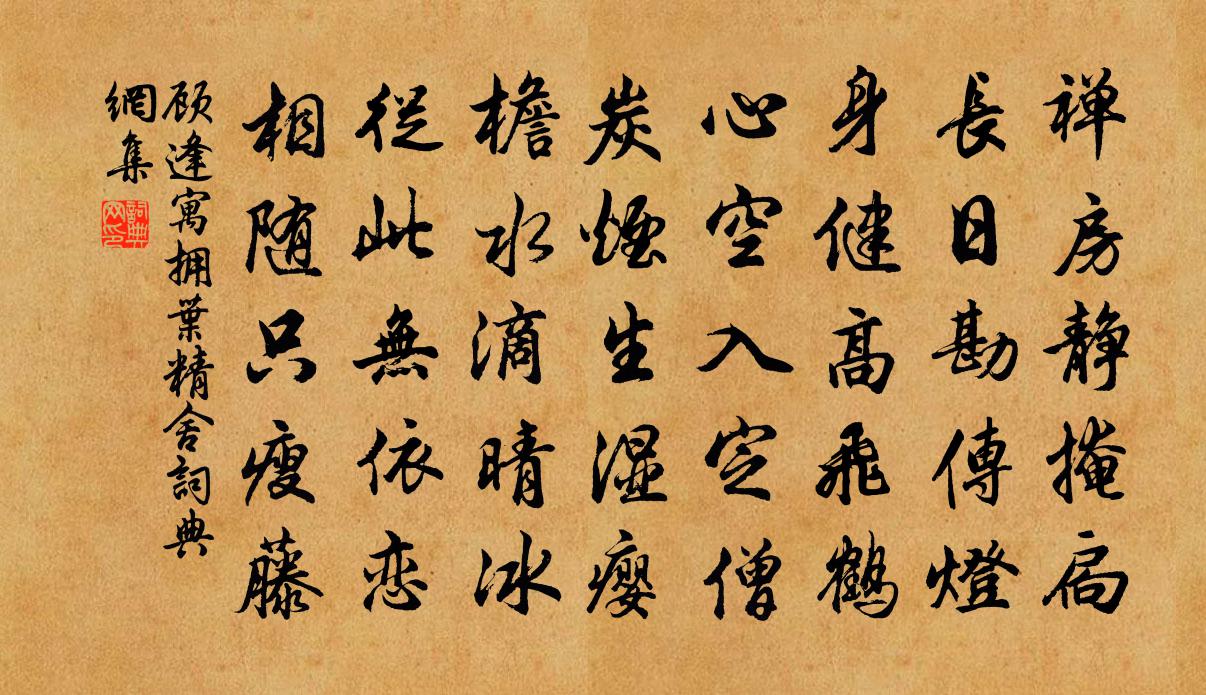 禅房静掩扃
長日勘傳燈
身健髙飛鶴
心空入定僧
炭煙生湿癭
檐水滴晴冰
從此無依恋
相随只瘦藤
顾逢寓拥葉精舍詞典
網集
詞典网印